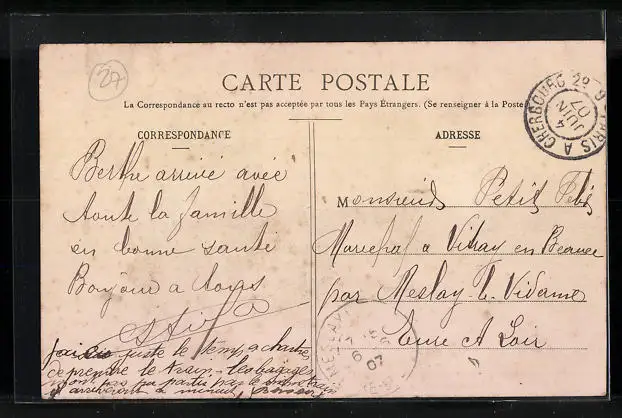 27
CARTE POSTALE
La Correspondance au recto n'est pas acceptée par tous les Pays Étrangers. (Se renseigner à la Poste
CORRESPONDANCE
ADRESSE
PARIS A CHERBOURG 2º
4
JUIN
07
Berthe arrivé avec
toute la famille
en bonne santé
Bonjour a tous
Monsieur Petit Fils
Marechal a Vitray en Beauce
par Meslay-le-Vidame
Eure et Loir
MESLAY
6
07
j'ai eu juste le temp a chartres
de prendre le train les bagages
n'ont pas pu partir par le
et arriveron a minuit